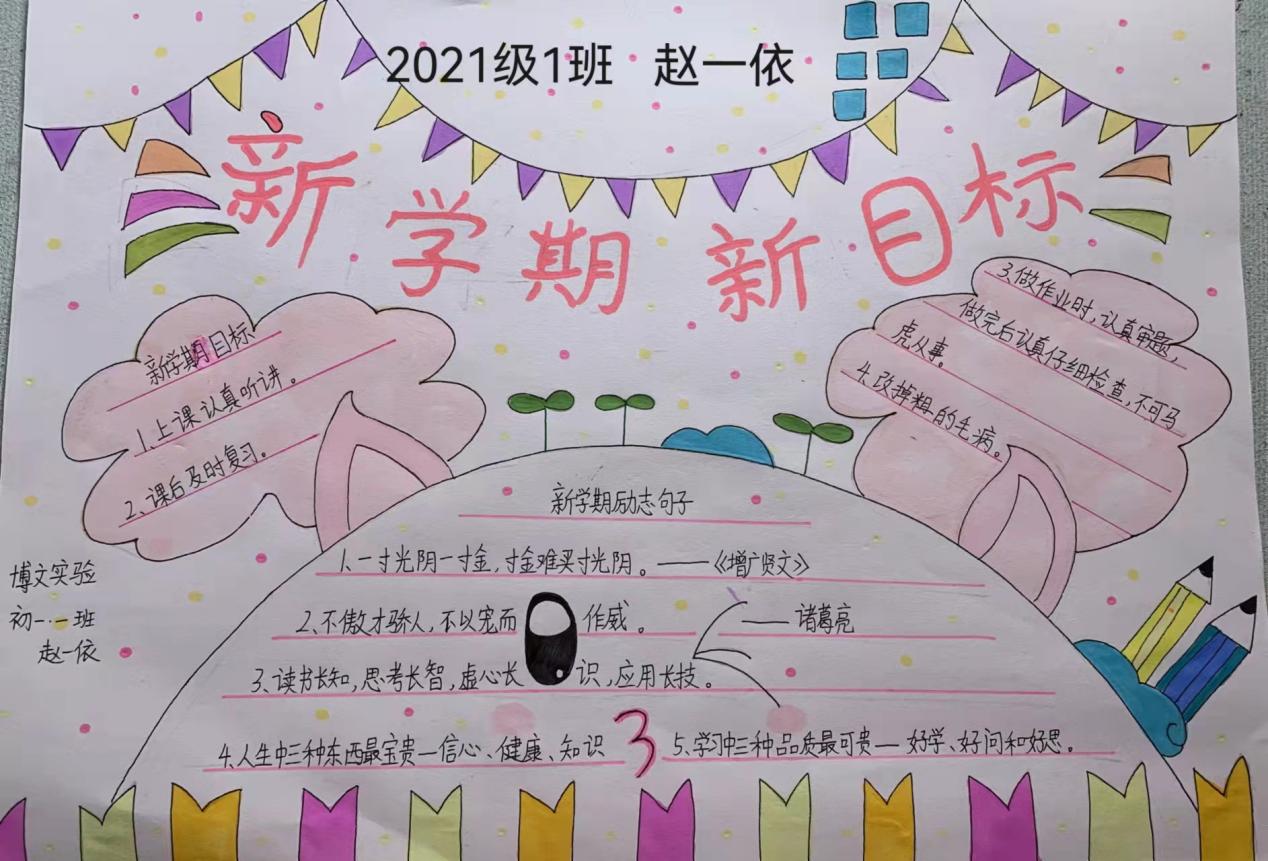 2021级1班 赵一依
新学期 新目标
新学期目标
1.上课认真听讲。
2、课后及时复习。
3、做作业时,认真审题,
做完后认真仔细检查,不可马
虎从事。
4.改掉粗的毛病。
新学期励志句子
1.一寸光阴一寸金,寸金难买寸光阴。——《增广贤文》
2、不傲才骄人,不以宠而作威。——诸葛亮
3、读书长知,思考长智,虚心长识,应用长技。
4.人生中三种东西最宝贵—信心、健康、知识
5.学习中三种品质最可贵—好学、好问和好思。
博文实验
初一·一班
赵一依